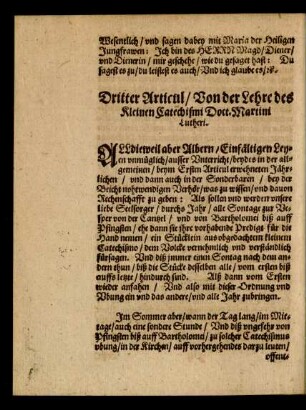 Wesentlich / vnd sagen dabey mit Maria der Heiligen
Jungfrawen: Ich bin des HERRN Magd / Diener /
vnd Dienerin / mir geschehe / wie du gesaget hast: Du
sagest es zu / du leistest es auch / Vnd ich glaube es / ꝛc.
Dritter Articul / Von der Lehre des
Kleinen Catechismi Doct. Martini
Lutheri.
ALLdieweil aber Albern / Einfältigen Ley-
en vnmüglich / ausser Vnterricht / beydes in der all-
gemeinen / beym Ersten Articul erwehneten Jähr-
lichen / vnd dann auch in der Sonderbaren / bey der
Beicht nohtwendigen Verhör / was zu wissen / vnd dauon
Rechenschafft zu geben: Als sollen vnd werden vnsere
liebe Seelsorger / durchs Jahr / alle Sontage zur Ves-
per von der Cantzel / vnd von Bartholomei biß auff
Pfingsten / ehe dann sie jhre vorhabende Predigt für die
Hand nemen / ein Stücklein aus obgedachtem kleinen
Catechismo / dem Volcke vernehmlich vnd verständlich
fürsagen. Vnd diß immer einen Sontag nach dem an-
dern thun / biß die Stücke desselben alle / vom ersten biß
auffs letzte / hindurch sind. Alß dann vom Ersten
wieder anfahen / Vnd also mit dieser Ordnung vnd
Vbung ein vnd das ander / vnd alle Jahr zubringen.
Im Sommer aber / wann der Tag lang / im Mit-
tage / auch eine sondere Stunde / Vnd diß vngefehr von
Pfingsten biß auff Bartholomei / zu solcher Catechismus
vbung / in der Kirchen / auff vorhergehendes darzu leuten /
offent-